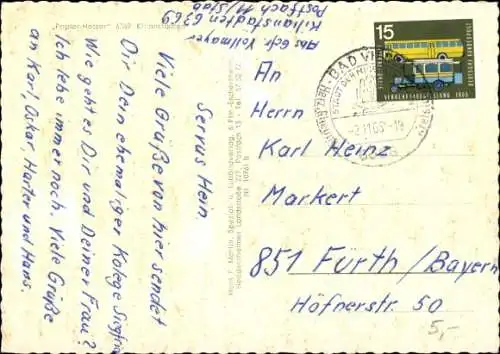 "Papstei-Hessen" 6369 Kilianstädten
Abs. Gefr. Vollmayer
Kilianstädten 6369
Postfach 11/Stab
Servus Hein
Viele Grüße von hier sendet
Dir Dein ehemaliger Kolege Siegfried
Wie geht es Dir und Deiner Frau?
Ich lebe immer noch. Viele Grüße
an Karl, Oskar, Harter und Hans.
Hans F. Martin, Spezial- u. Luftbildverlag, 6 Ffm.-Eschersheim
Eschersheimer Landstraße
15
VERKEHRSAUSSTELLUNG 1965
DEUTSCHE BUNDESPOST
BAD
-2.11.65-19
An
Herrn
Karl Heinz
Markert
851 Fürth/Bayern
Höfnerstr. 50
5,-